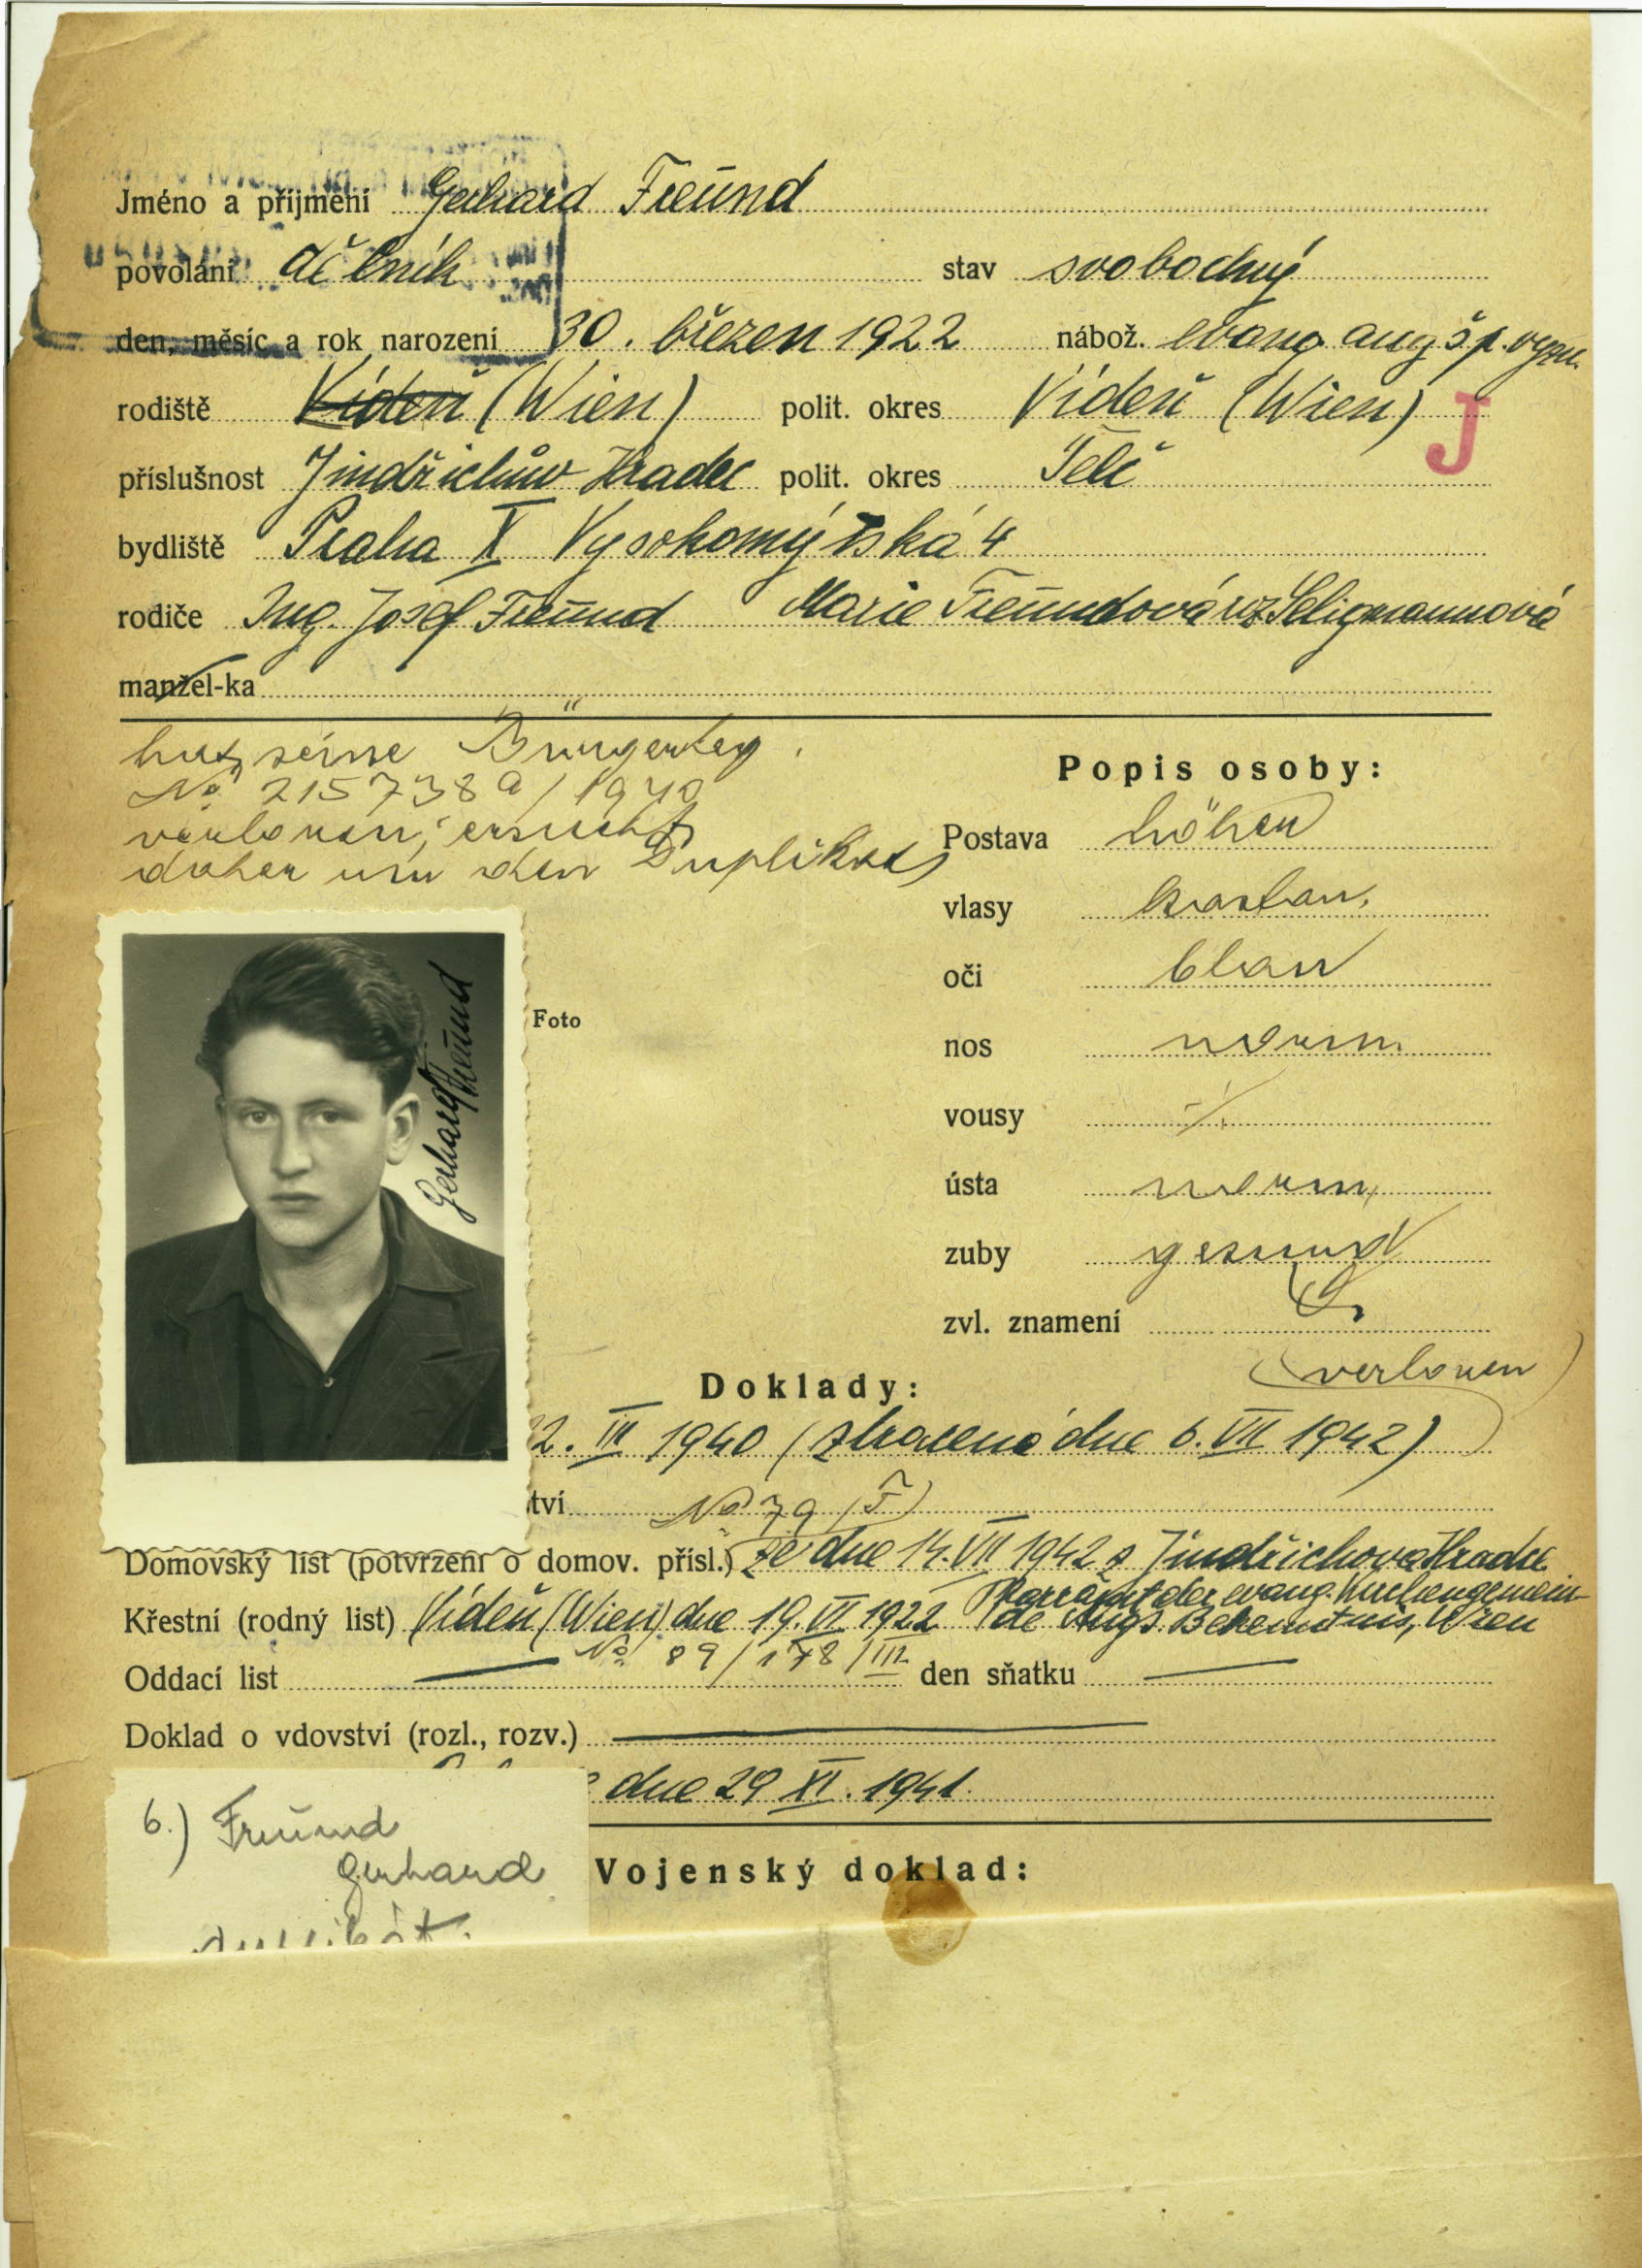 Jméno a příjmení Gerhard Freund
povolání dělník stav svobodný
den, měsíc a rok narození 30. březen 1922 nábož. evang. augšp. vyzn.
rodiště Vídeň (Wien) polit. okres Vídeň (Wien)
J
příslušnost Jindřichův Hradec polit. okres Telč
bydliště Praha X Vysokomýtská 4
rodiče Ing. Josef Freund Marie Freundová roz. Seligmannová
manžel-ka
hat seine Bürgerleg.
No 215738a/1940
verloren, ersucht
daher um den Duplikat
Popis osoby:
Postava höher
vlasy kastan.
oči blau
Foto
Gerhard Freund
nos norm.
vousy
ústa norm.
zuby gesund
zvl. znamení
(verloren)
Doklady:
2. III 1940 (ztraceno dne 6. VII 1942)
tví No 79 (F)
Domovský list (potvrzení o domov. přísl.) ze dne 14. VII 1942 z Jindřichova Hradce
Pfarramt der evang. Kirchengemein-
Křestní (rodný list) Vídeň (Wien) dne 19. VI. 1922 de Augs. Bekenntnis, Wien
No 89/178/III
Oddací list den sňatku
Doklad o vdovství (rozl., rozv.)
dne 29 XI. 1941.
6.) Freund
Gerhard
duplikát.
Vojenský doklad: